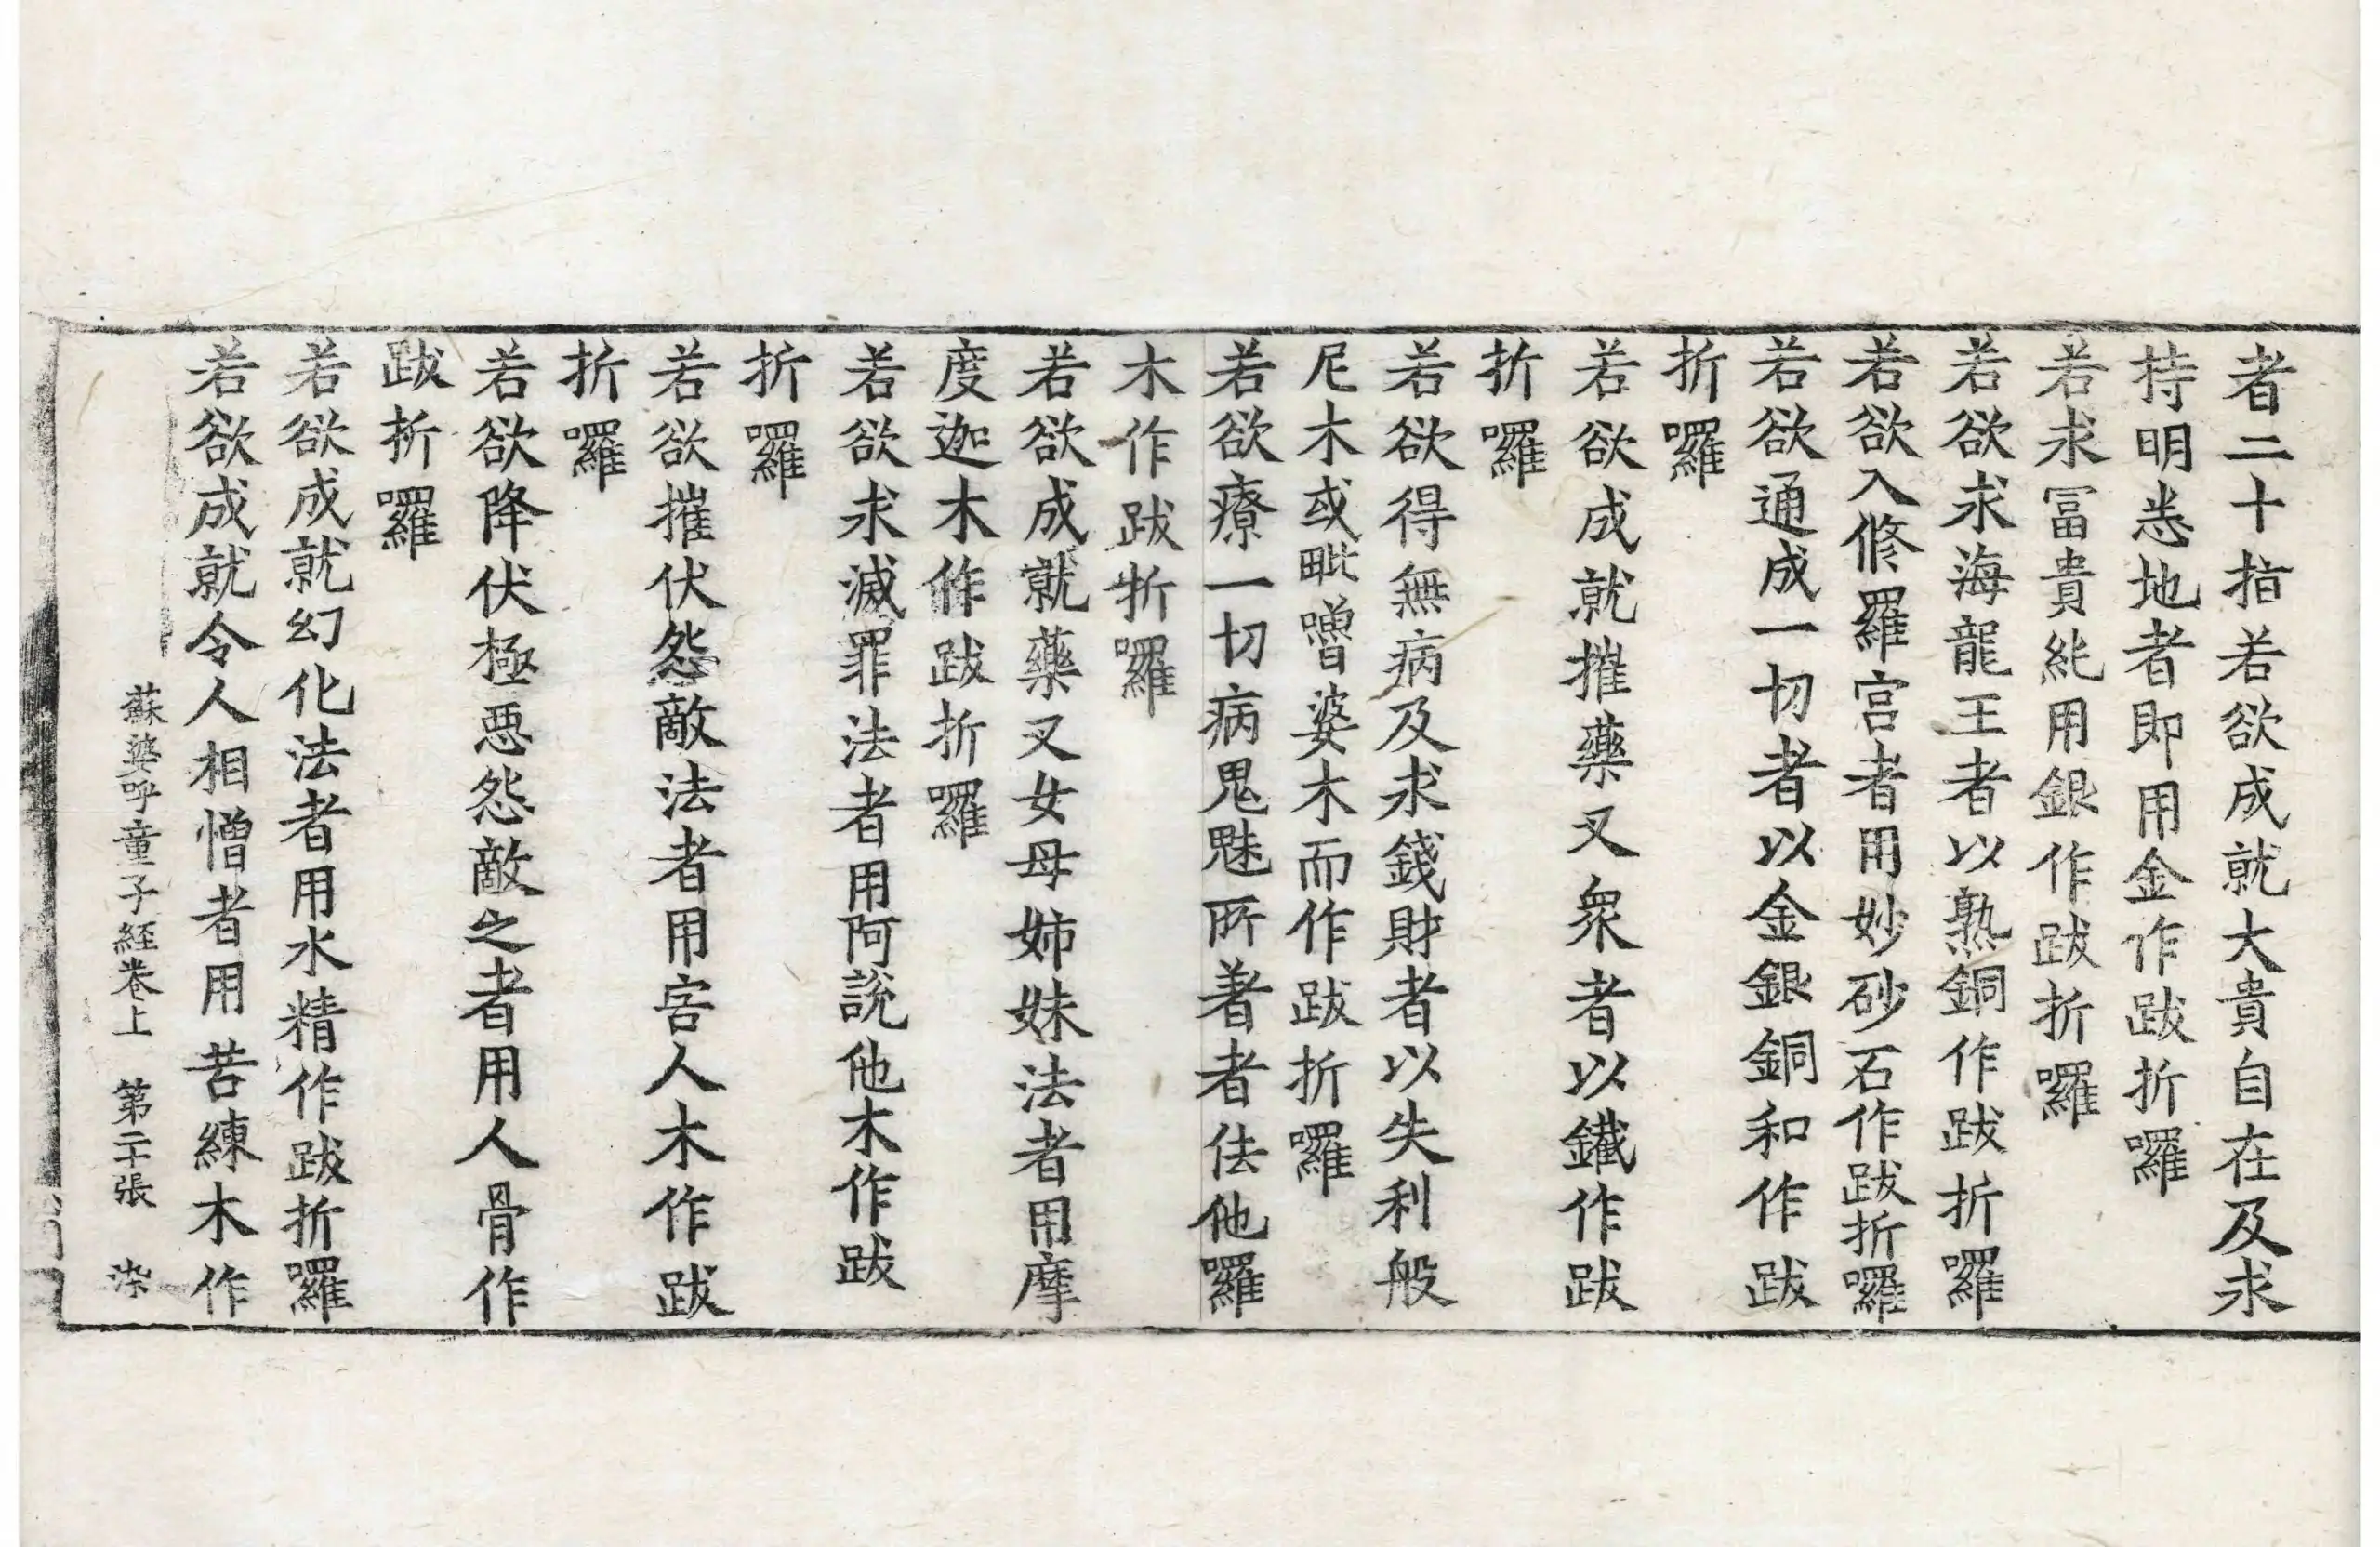 者二十指若欲成就大貴自在及求
持明悉地者即用金作跋折囉
若求冨貴能用銀作跋折囉
若欲求海龍王者以熟銅作跋折囉
若欲入修羅宮者用妙砂石作跋折囉
若欲通成一切者以金銀銅和作跋
折囉
若欲成就摧藥叉衆者以鐵作跋
折囉
若欲得無病及求錢財者以失利般
尼木或毗噜婆木而作跋折囉
若欲療一切病鬼魅所著者佉他羅
木作跋折囉
若欲成就藥叉女母姉妹法者用摩
度迦木作跋折囉
若欲求滅罪法者用阿說他木作跋
折囉
若欲摧伏怨敵法者用害人木作跋
折囉
若欲降伏極惡怨敵之者用人骨作
跋折囉
若欲成就幻化法者用水精作跋折囉
若欲成就令人相憎者用苦練木作
蘇婆呼童子經卷上 第二十張 染